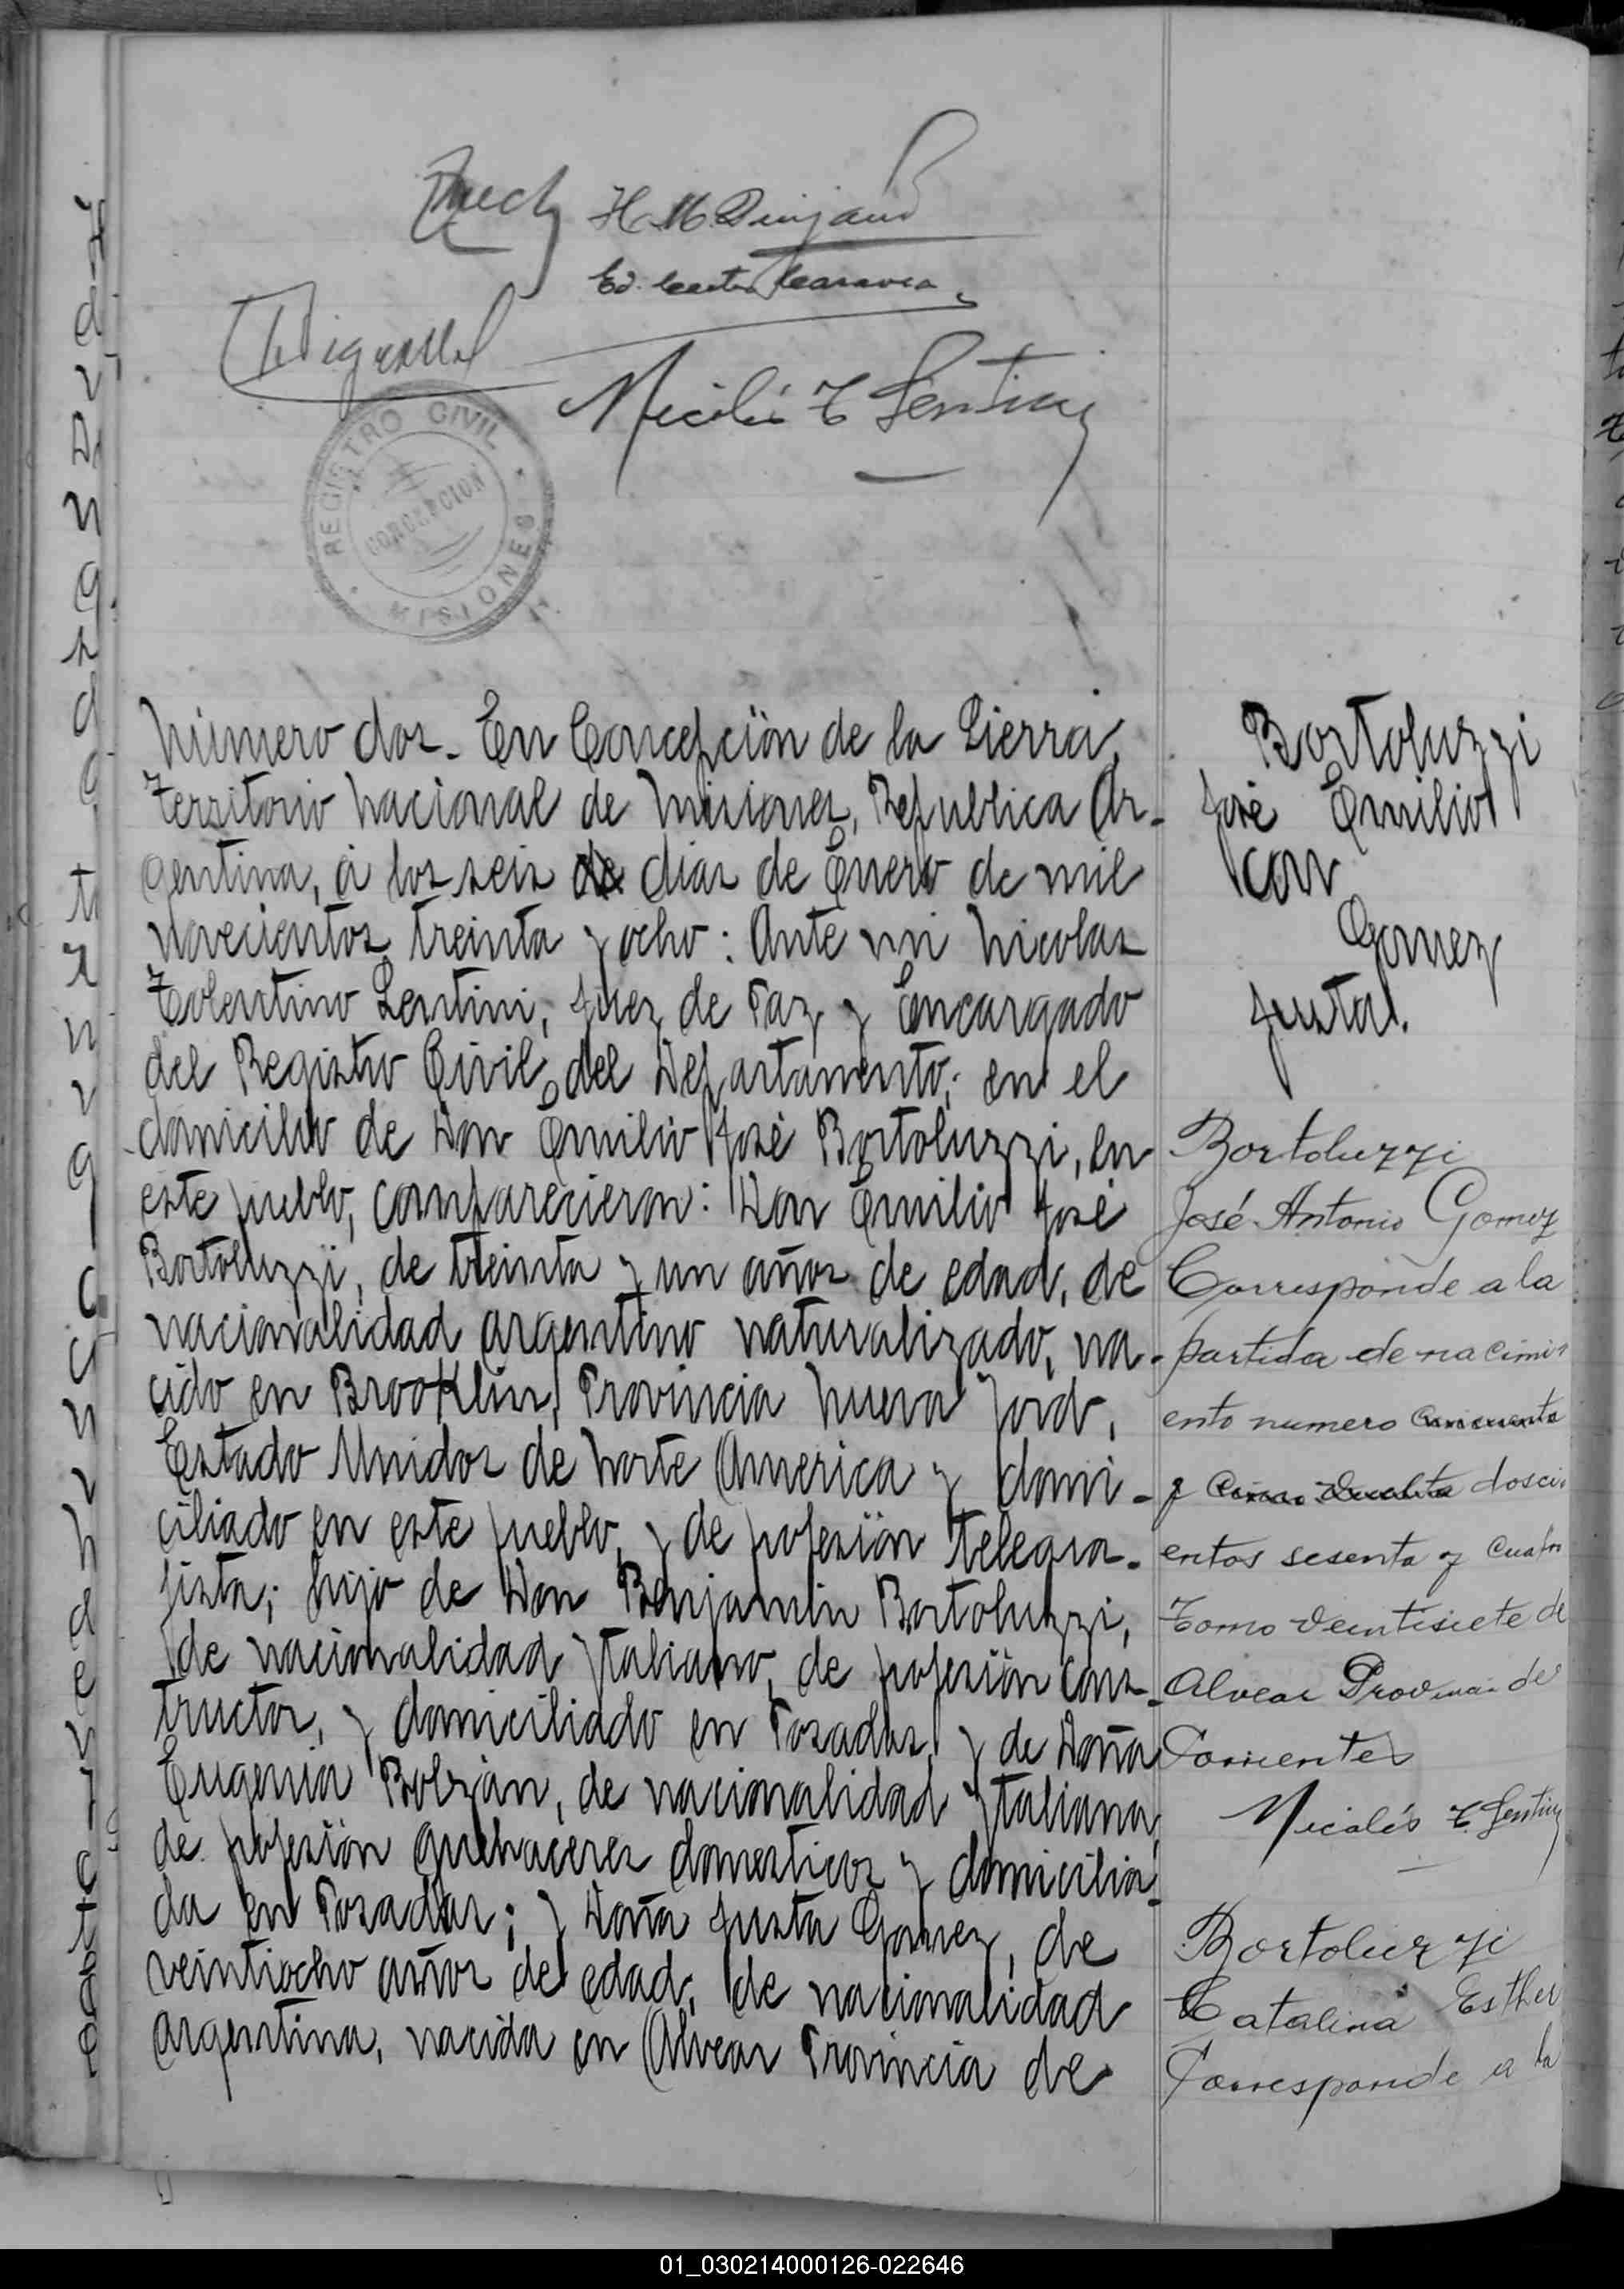 H. M.
Nicolás T Lentini
REGISTRO CIVIL
CONCEPCION
MISIONES
Número dos. En Concepción de la Sierra,
Territorio Nacional de Misiones, Republica Ar-
gentina, á los seis de dias de Enero de mil
novecientos treinta y ocho: Ante mi Nicolas
Tolentino Lentini, Juez de Paz y Encargado
del Registro Civil del Departamento; en el
domicilio de Don Emilio José Bortoluzzi, en
este pueblo, comparecieron: Don Emilio José
Bortoluzzi, de treinta y un años de edad, de
nacionalidad argentino naturalizado, na-
cido en Brooklin, Provincia Nueva Yord,
Estado Unidos de Norte America y domi-
ciliado en este pueblo, y de profesión telegra-
fista; hijo de Don Benjamin Bortoluzzi,
de nacionalidad Ytaliano, de profesión cons-
tructor, y domiciliado en Posadas, y de Doña
Eugenia Bolzán, de nacionalidad Ytaliana,
de profesión quehaceres domesticos y domicilia-
da en Posadas; y Doña Justa Gomez, de
veintiocho años de edad, de nacionalidad
argentina, nacida en Alvear Provincia de
Bortoluzzi
José Emilio
con
Gomez
Justa.
Bortoluzzi
José Antonio Gomez
Corresponde a la
partida de nacimi
ento numero cincuenta
y cinco vuelta dosci
entos sesenta y cuatro
Tomo veintisiete de
Alvear Provincia de
Corrientes
Nicolás T. Lentini
Bortoluzzi
Catalina Esther
Corresponde a la
01_030214000126-022646